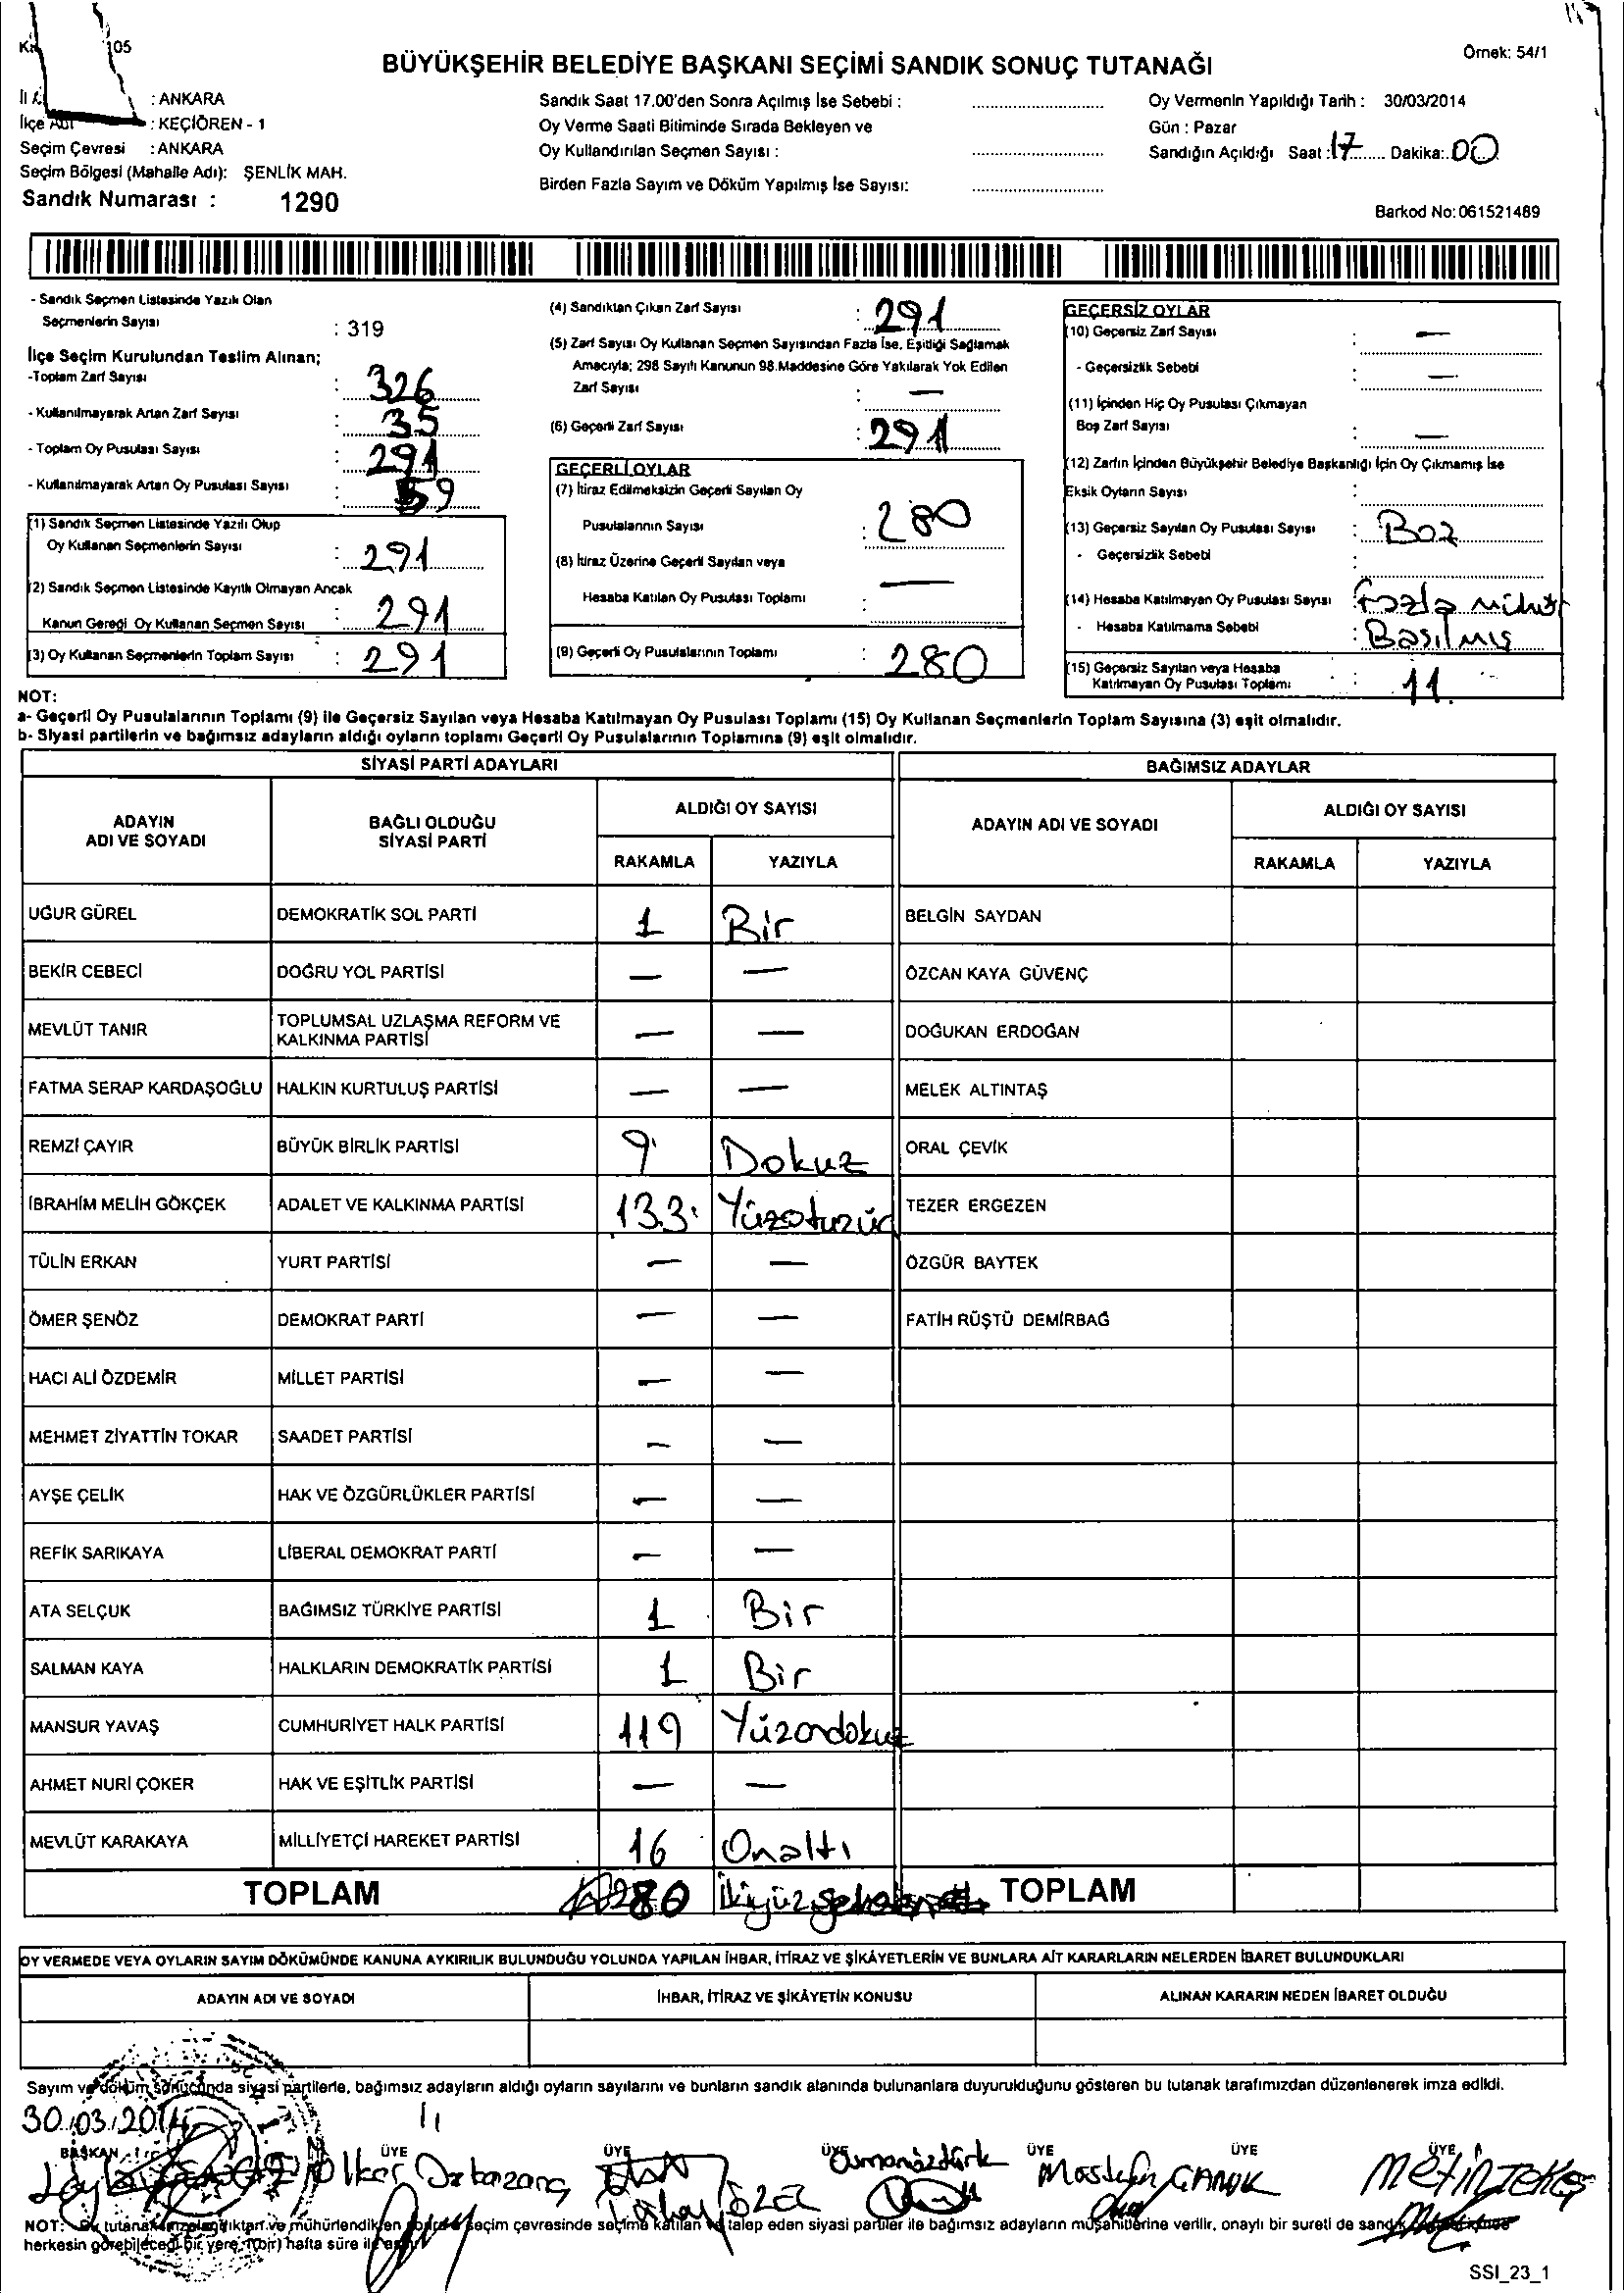 05
Örnek: 54/1
BÜYÜKŞEHİR BELEDİYE BAŞKANI SEÇİMİ SANDIK SONUÇ TUTANAĞI
: ANKARA
: KEÇİÖREN - 1
Seçim Çevresi : ANKARA
Seçim Bölgesi (Mahalle Adı): ŞENLİK MAH.
Sandık Numarası : 1290
Sandık Saat 17.00'den Sonra Açılmış İse Sebebi :
Oy Verme Saati Bitiminde Sırada Bekleyen ve
Oy Kullandırılan Seçmen Sayısı :
Birden Fazla Sayım ve Döküm Yapılmış İse Sayısı:
Oy Vermenin Yapıldığı Tarih : 30/03/2014
Gün : Pazar
Sandığın Açıldığı Saat : 17 Dakika: 00
Barkod No: 061521489
- Sandık Seçmen Listesinde Yazılı Olan
Seçmenlerin Sayısı : 319
İlçe Seçim Kurulundan Teslim Alınan;
-Toplam Zarf Sayısı : 326
- Kullanılmayarak Artan Zarf Sayısı : 35
- Toplam Oy Pusulası Sayısı : 291
- Kullanılmayarak Artan Oy Pusulası Sayısı :
(1) Sandık Seçmen Listesinde Yazılı Olup
Oy Kullanan Seçmenlerin Sayısı : 291
(2) Sandık Seçmen Listesinde Kayıtlı Olmayan Ancak
Kanun Gereği Oy Kullanan Seçmen Sayısı : 291
(3) Oy Kullanan Seçmenlerin Toplam Sayısı : 291
(4) Sandıktan Çıkan Zarf Sayısı : 291
(5) Zarf Sayısı Oy Kullanan Seçmen Sayısından Fazla İse, Eşitliği Sağlamak
Amacıyla; 298 Sayılı Kanunun 98.Maddesine Göre Yakılarak Yok Edilen
Zarf Sayısı : —
(6) Geçerli Zarf Sayısı : 291
GEÇERLİ OYLAR
(7) İtiraz Edilmeksizin Geçerli Sayılan Oy
Pusulalarının Sayısı : 280
(8) İtiraz Üzerine Geçerli Sayılan veya
Hesaba Katılan Oy Pusulası Toplamı : —
(9) Geçerli Oy Pusulalarının Toplamı : 280
GEÇERSİZ OYLAR
(10) Geçersiz Zarf Sayısı : —
- Geçersizlik Sebebi : —
(11) İçinden Hiç Oy Pusulası Çıkmayan
Boş Zarf Sayısı : —
(12) Zarfın İçinden Büyükşehir Belediye Başkanlığı İçin Oy Çıkmamış İse
Eksik Oyların Sayısı :
(13) Geçersiz Sayılan Oy Pusulası Sayısı :
- Geçersizlik Sebebi :
(14) Hesaba Katılmayan Oy Pusulası Sayısı : Fazla mühür
- Hesaba Katılmama Sebebi : Basılmış
(15) Geçersiz Sayılan veya Hesaba
Katılmayan Oy Pusulası Toplamı : 11
NOT:
a- Geçerli Oy Pusulalarının Toplamı (9) ile Geçersiz Sayılan veya Hesaba Katılmayan Oy Pusulası Toplamı (15) Oy Kullanan Seçmenlerin Toplam Sayısına (3) eşit olmalıdır.
b- Siyasi partilerin ve bağımsız adayların aldığı oyların toplamı Geçerli Oy Pusulalarının Toplamına (9) eşit olmalıdır.
SİYASİ PARTİ ADAYLARI BAĞIMSIZ ADAYLAR
ADAYIN ADI VE SOYADI BAĞLI OLDUĞU SİYASİ PARTİ ALDIĞI OY SAYISI ADAYIN ADI VE SOYADI ALDIĞI OY SAYISI
RAKAMLA YAZIYLA RAKAMLA YAZIYLA
UĞUR GÜREL DEMOKRATİK SOL PARTİ 1 Bir BELGİN SAYDAN
BEKİR CEBECİ DOĞRU YOL PARTİSİ — — ÖZCAN KAYA GÜVENÇ
MEVLÜT TANIR TOPLUMSAL UZLAŞMA REFORM VE KALKINMA PARTİSİ — — DOĞUKAN ERDOĞAN
FATMA SERAP KARDAŞOĞLU HALKIN KURTULUŞ PARTİSİ — — MELEK ALTINTAŞ
REMZİ ÇAYIR BÜYÜK BİRLİK PARTİSİ 9 Dokuz ORAL ÇEVİK
İBRAHİM MELİH GÖKÇEK ADALET VE KALKINMA PARTİSİ 133 Yüzotuzüç TEZER ERGEZEN
TÜLİN ERKAN YURT PARTİSİ — — ÖZGÜR BAYTEK
ÖMER ŞENÖZ DEMOKRAT PARTİ — — FATİH RÜŞTÜ DEMİRBAĞ
HACI ALİ ÖZDEMİR MİLLET PARTİSİ — —
MEHMET ZİYATTİN TOKAR SAADET PARTİSİ — —
AYŞE ÇELİK HAK VE ÖZGÜRLÜKLER PARTİSİ — —
REFİK SARIKAYA LİBERAL DEMOKRAT PARTİ — —
ATA SELÇUK BAĞIMSIZ TÜRKİYE PARTİSİ 1 Bir
SALMAN KAYA HALKLARIN DEMOKRATİK PARTİSİ 1 Bir
MANSUR YAVAŞ CUMHURİYET HALK PARTİSİ 119 Yüzondokuz
AHMET NURİ ÇOKER HAK VE EŞİTLİK PARTİSİ — —
MEVLÜT KARAKAYA MİLLİYETÇİ HAREKET PARTİSİ 16 Onaltı
TOPLAM 280 İkiyüzseksen TOPLAM
OY VERMEDE VEYA OYLARIN SAYIM DÖKÜMÜNDE KANUNA AYKIRILIK BULUNDUĞU YOLUNDA YAPILAN İHBAR, İTİRAZ VE ŞİKÂYETLERİN VE BUNLARA AİT KARARLARIN NELERDEN İBARET BULUNDUKLARI
ADAYIN ADI VE SOYADI İHBAR, İTİRAZ VE ŞİKÂYETİN KONUSU ALINAN KARARIN NEDEN İBARET OLDUĞU
Sayım ve döküm sonucunda siyasi partilerle, bağımsız adayların aldığı oyların sayılarını ve bunların sandık alanında bulunanlara duyurulduğunu gösteren bu tutanak tarafımızdan düzenlenerek imza edildi.
30.03.2014
BAŞKAN ÜYE ÜYE ÜYE ÜYE ÜYE ÜYE
Osman Öztürk Metin
NOT: Bu tutanak imzalandıktan ve mühürlendikten sonra seçim çevresinde seçime katılan ve talep eden siyasi partiler ile bağımsız adayların müşahitlerine verilir, onaylı bir sureti de sandık
herkesin görebileceği bir yere 1(bir) hafta süre ile asılır
SSI_23_1